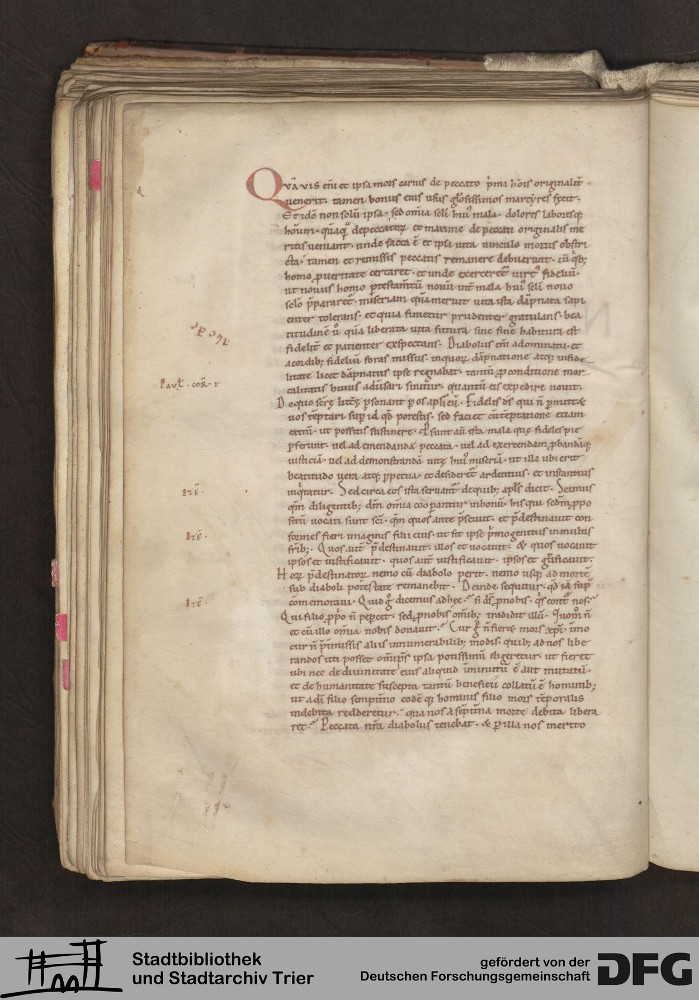 QVĀVIS eni et ipsa mors carnis de peccato p̄mi hoīs originalit̄
uenerit. tamen bonus eius usus gl̄osissimos martyres fecit.
Et ido non solū ipsa. sed om̄ia sc̄li hui᷒ mala. dolores laboresq;
hominum. quāquā de peccatorū et maxime de peccati originalis me
ritis ueniant. unde facta ē et ipsa uita uinculo mortis obstri
cta. tamen et remissis peccatis remanere debuerunt. cū q̄b;
homo p̱ ueritate certaret. et unde exerceret̄ uirt᷒ fideliū.
ut nouus homo p̱ testam̄tū nouū int̄ mala hui᷒ sc̄li nouo
sc̄lo p̄pararet̄. miseriam quā meruit uita ista dāpnata sapi
enter tolerans. et quia finietur prudenter gratulans. bea
titudinē ū quā liberata uita futura sine fine habitura est
fidelit̄ et patienter exspectans. Diabolus eni a dominatu et
a cordib; fideliū foras missus. in quorū dāpnatione atq; infide
litate licet dāpnatus ipse regnabat. tantū p̱ conditione mor
talitatis huius aduersari sinitur. quantū eis expedire nouit.
De quo sacrę litterę p̱sonant p̱ os apl̄i cū. Fidelis d̄s qui n̄ p̱mittat
uos tēptari sup̱ id qd̄ potestis. sed faciet cū tēptatione etiam
exitū. ut possitis sustinere. Prosunt aū ista mala quę fideles pie
p̱ferunt. uel ad emendanda peccata. uel ad exercendam p̱bandāq;
iusticiā. uel ad demonstrandā uitę hui᷒ miseriā. ut illa ubi erit
beatitudo uera atq; p̱petua. et desideret̄ ardentius. et instantius
inq̄ratur. Sed circa eos ista seruant̄ de quib; apl̄s dicit. Scimus
qm̄ diligentib; dm̄ om̄ia coop̱antur in bonū. his qui sedm̄ p̱po
situ uocati sunt sc̄i. qm̄ quos ante p̄sciuit. et p̄destinauit con
formes fieri imaginis filii eius. ut sit ipse p̄mogenitus in multis
frīb;. Quos aut̄ p̄destinauit. illos et uocauit. & quos uocauit
ipsos et iustificauit. quos aut̄ iustificauit. ipsos et gl̄ificauit.
Horū p̄destinatorū nemo cū diabolo perit. nemo usq; ad mortē
sub diaboli potestate remanebit. Deinde sequitur. qd̄ iā sup̱
comemoraui. Quid ḡ dicemus ad hęc. Si d̄s p̱ nobis. q̄s cont̄ nos.
Qui filio p̱p̱o n̄ pepercit. sed p̱ nobis om̄ib; tradidit illū. Quom̄ n̄
et cū illo om̄ia nobis donauit. Cur ḡ n̄ fieret mors xp̄i. imo
cur n̄ p̱t̄missis aliis innumerabilib; modis. quib; ad nos libe
randos uti posset om̄ip̄s ipsa potissimū eligeretur. ut fieret
ubi nec de diuinitate eius aliquid iminutū ē aut mutatū.
et de humanitate suscepta tantū beneficii collatū ē hominib;
ut a dī filio sempitīno eodē q; hominis filio mors tēporalis
indebita redderetur. qua nos a sēpitīna morte debita libera
ret. Peccata nr̄a diabolus tenebat. & p̱ illa nos merito
Paul̄. cor̄. i
Itē.
Itē.
Itē.
Stadtbibliothek
und Stadtarchiv Trier
gefördert von der
Deutschen Forschungsgemeinschaft
DFG